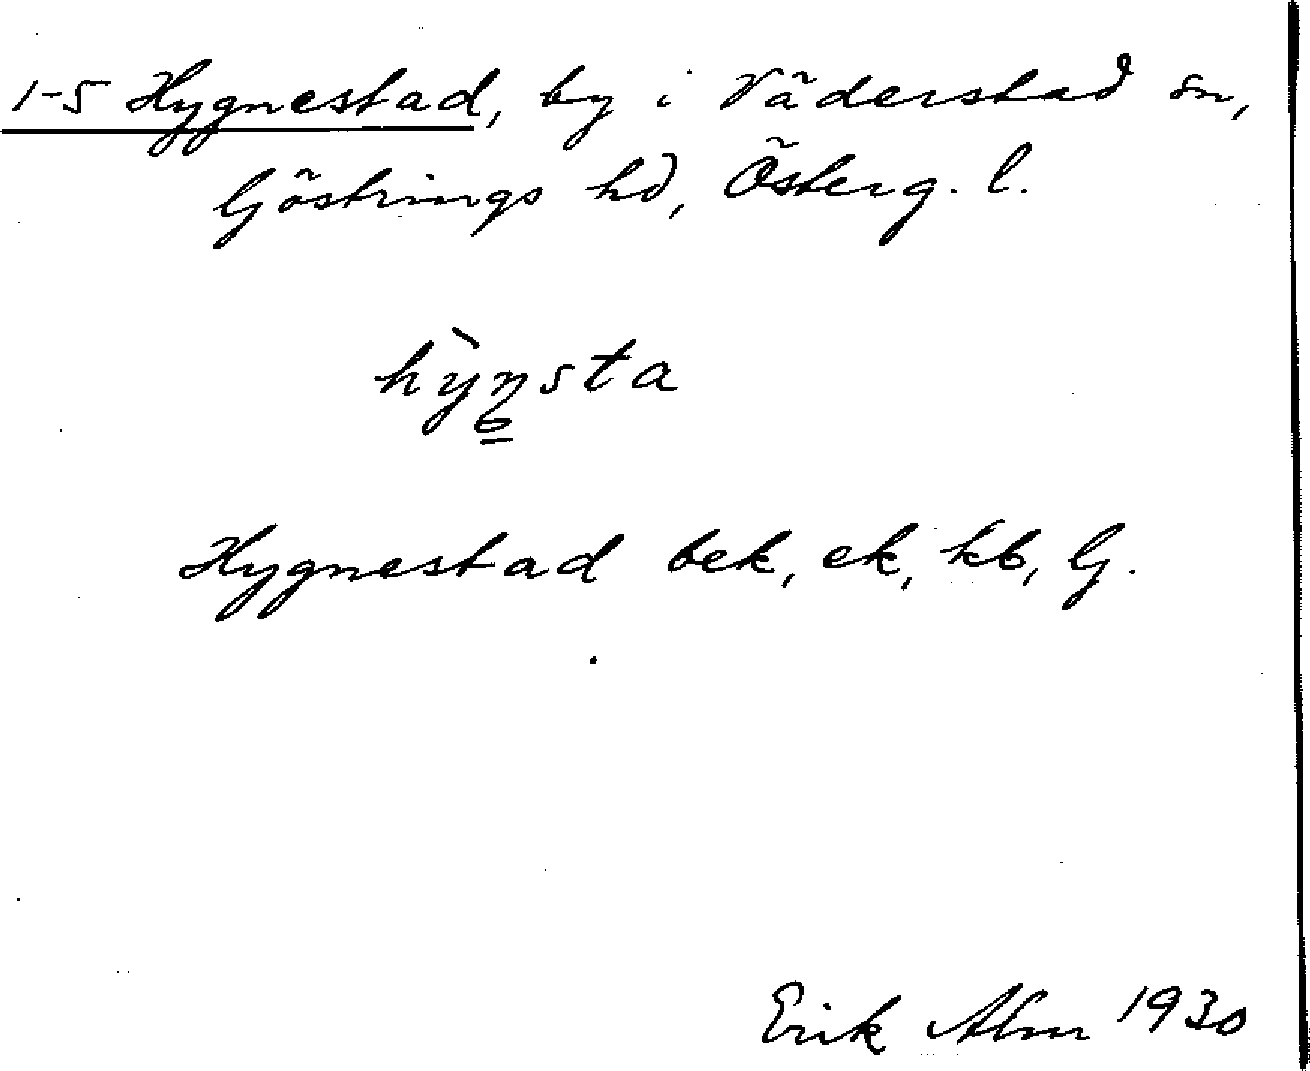 1-5 Hygnestad, by i Väderstad sn,
Göstrings hd, Österg. l.
hỳŋsta
Hygnestad bek, ek, kb, G.
Erik Alm 1930